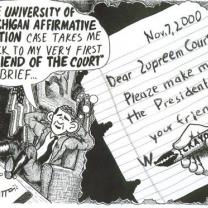 UNIVERSITY OF
AFFIRMATIVE
CASE TAKES ME
TO MY VERY FIRST
"FRIEND OF THE COURT"
BRIEF...
Nov. 7, 2000
Dear Zupreem Court
Please make m
the President
your frien
W